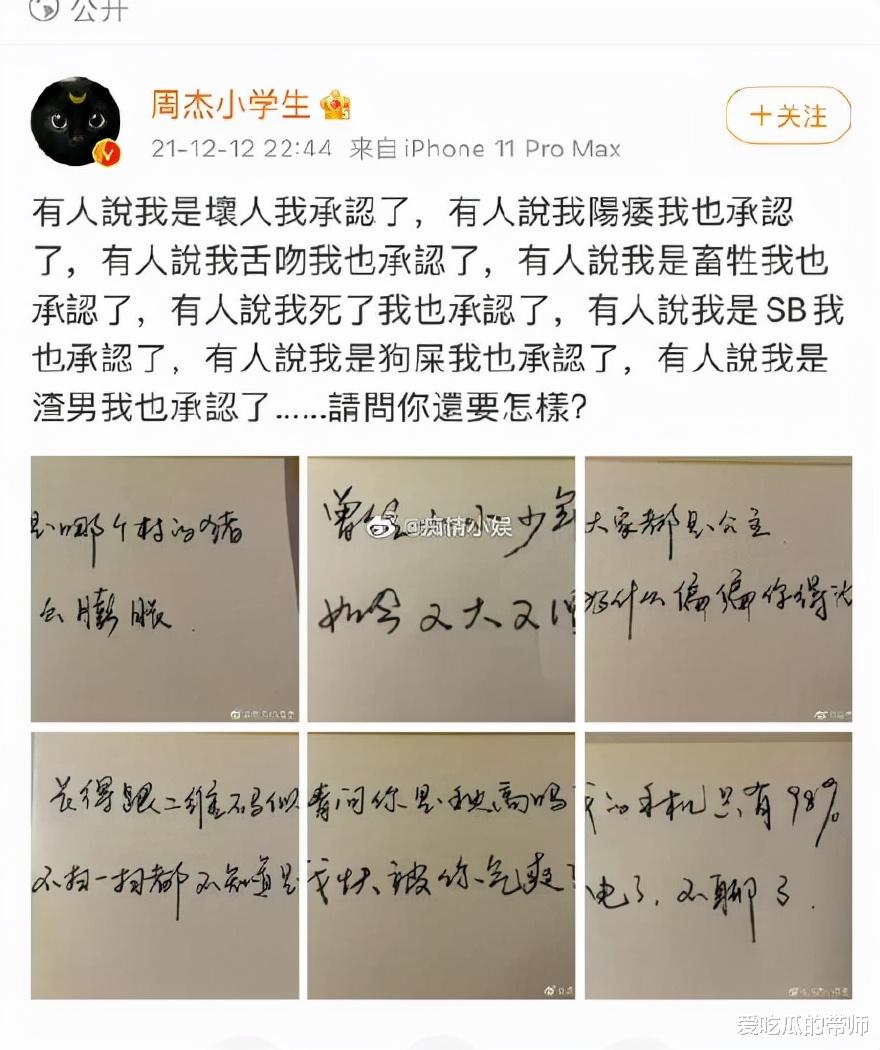 公开
周杰小学生
+关注
21-12-12 22:44 来自 iPhone 11 Pro Max
有人說我是壞人我承認了，有人說我陽痿我也承認
了，有人說我舌吻我也承認了，有人說我是畜牲我也
承認了，有人說我死了我也承認了，有人說我是 SB 我
也承認了，有人說我是狗屎我也承認了，有人說我是
渣男我也承認了……請問你還要怎樣？
是哪个村的猪
么膨胀
曾经 小少年
@痴情小娱
如今又大又
大家都是公主
为什么偏偏你得
长得跟二维码似
不扫一扫都不知道是
请问你是 高吗
我快被你气爽
我的手机只有98%
电了，不聊了.
爱吃瓜的带师